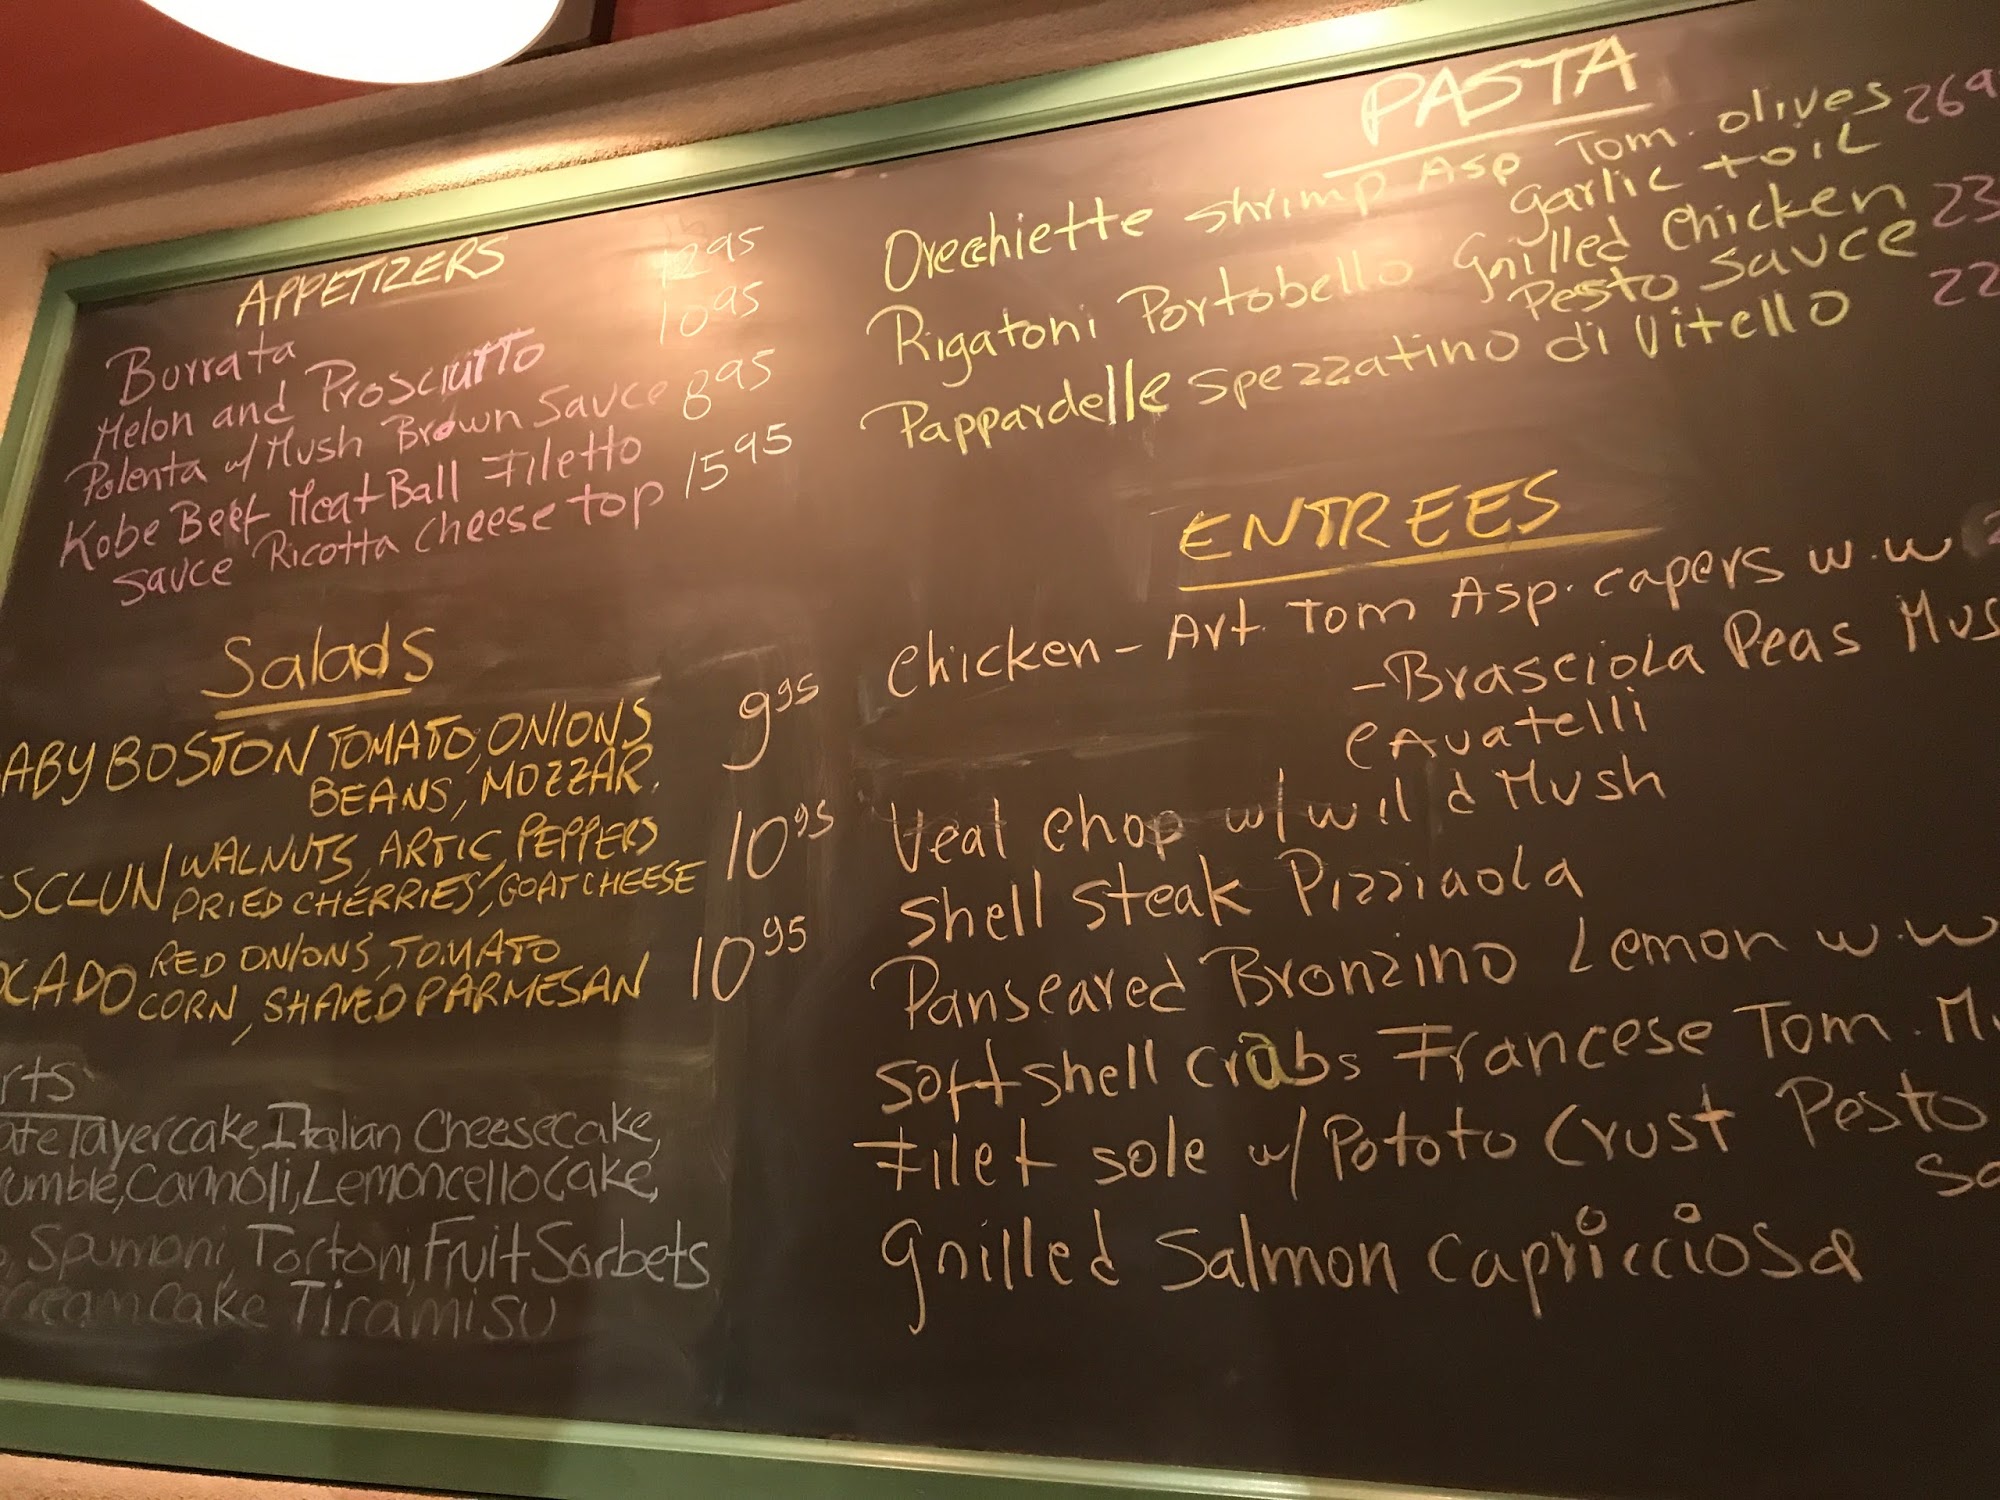 APPETIZERS
Burrata 12 95
Melon and Prosciutto 10 95
Polenta w/ Mush Brown Sauce 8 95
Kobe Beef Meat Ball Filetto
Sauce Ricotta Cheese top 15 95
Salads
ABY BOSTON TOMATO, ONIONS 9 95
BEANS, MOZZAR.
SCLUN WALNUTS, ARTIC, PEPPERS 10 95
DRIED CHERRIES, GOAT CHEESE
CADO RED ONIONS, TOMATO 10 95
CORN, SHAVED PARMESAN
rts
ate Layer cake, Italian Cheesecake,
umble, Cannoli, Lemoncello Cake,
Spumoni, Tortoni, Fruit Sorbets
cream cake Tiramisu
PASTA
Orecchiette shrimp Asp Tom. olives 269
garlic + oil
Rigatoni Portobello Grilled Chicken 23
Pesto Sauce
Pappardelle spezzatino di Vitello 22
ENTREES
Chicken - Art. Tom Asp. capers w.w 2
- Brasciola Peas Mus
Cavatelli
Veal Chop w/ wild Mush
Shell Steak Pizziaola
Panseared Bronzino Lemon w.w
Softshell crabs Francese Tom. M
Filet sole w/ Pototo Crust Pesto
Sa
Grilled Salmon Capricciosa